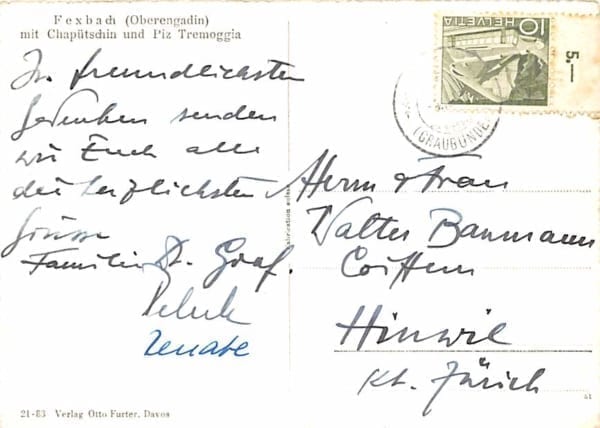 Fexbach (Oberengadin)
mit Chapütschin und Piz Tremoggia
In freundlichsten
Gedenken senden
wir Euch alle
die herzlichsten
Grüsse
Familie St. Graf.
Renate
HELVETIA
10
5.—
(GRAUBÜNDEN)
Herrn & Frau
Walter Baumann
Coiffeur
Hinwil
Kt. Zürich
21-83 Verlag Otto Furter, Davos